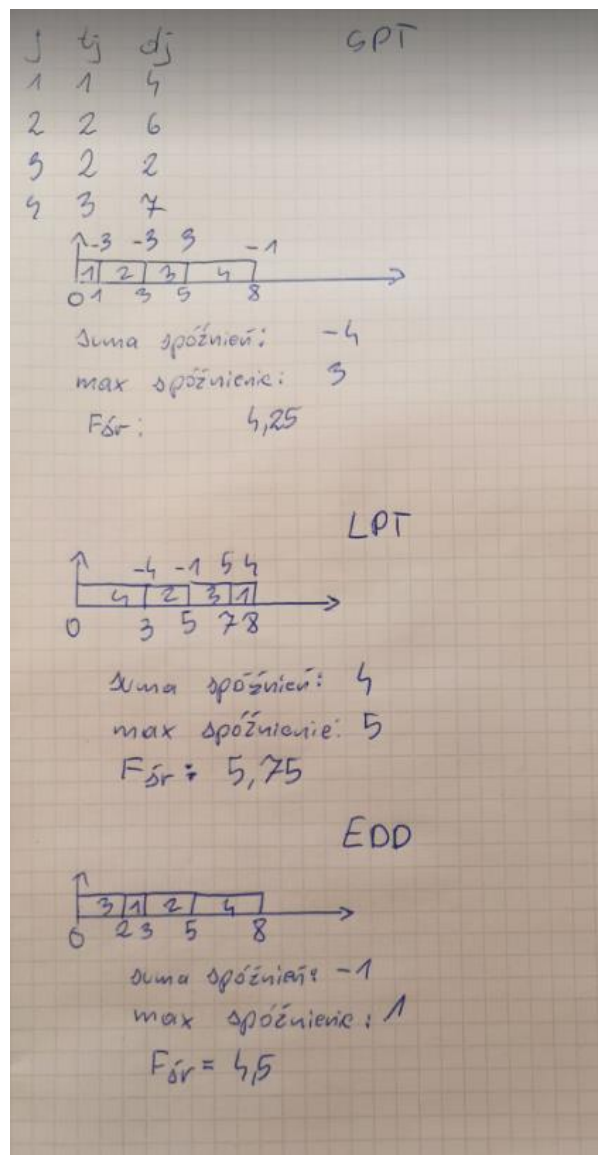 j tj dj SPT
1 1 4
2 2 6
3 2 2
4 3 7
-3 -3 3 -1
1 2 3 4
0 1 3 5 8
suma spóźnień: -4
max spóźnienie: 3
Fśr: 4,25
LPT
-4 -1 5 4
4 2 3 1
0 3 5 7 8
suma spóźnień: 4
max spóźnienie: 5
Fśr: 5,75
EDD
3 1 2 4
0 2 3 5 8
suma spóźnień: -1
max spóźnienie: 1
Fśr = 4,5